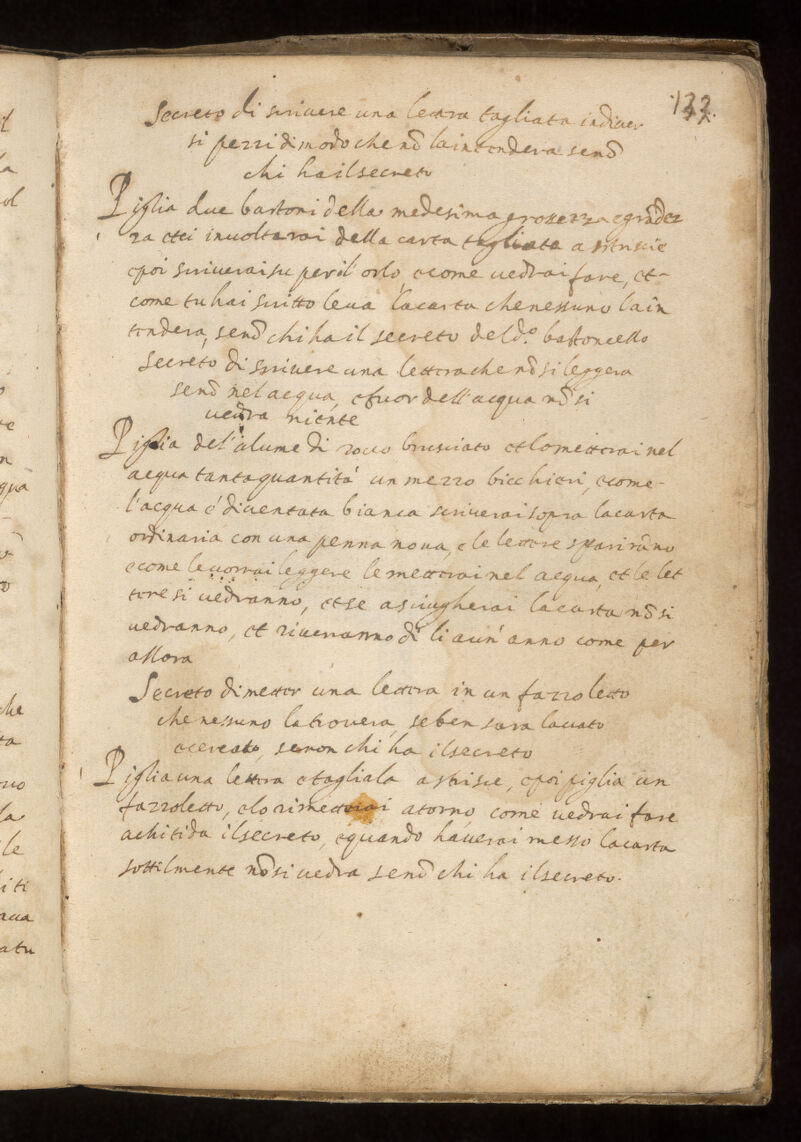 133.
Secreto di scrivere una lettra tagliata indiuer
si pezzi di modo che nõ la intenderà senõ
chi ha il secreto
Piglia due bastoni della medesima grossezza e grãdez
za et ci inuolterai della carta tagliata a striscie
e poi scriverai su per il' orlo e come uedrai fare, et
come tu hai scritto leua la carta che nessuno la in
tenderà, senõ chi ha il secreto del d.º bastoncello
Secreto di scrivere una lettera che nõ si leggera
senõ nel acqua, e fuor dell'acqua nõ si
uedra niente
Piglia del'alume di rocco brusciato et lo metterai nel
acqua tanta quantità un mezzo bicchieri, e come
l'acqua é diuentata bianca scriuerai sopra la carta
ordinaria con una penna noua, e le lettere sparirãno
e come le uorrai leggere le metterai nel acqua, et le let
tere si uedranno, et se asciugherai la carta nõ si
uedranno, et riueranno di li a un' anno come per
allora
Secreto di metter una lettera in un fazzoletto
che nessuno la trouera, se ben sara lauato
o cercato, se non chi ha il secreto
Piglia una lettera e tagliala a strisie, e poi piglia un
fazzoletto, e lo rimetterai atorno, come uedrai fare
a chi ti da il secreto, e quando hauerai messo la carta
sottilmente nõ si uedra senõ chi ha il secreto.